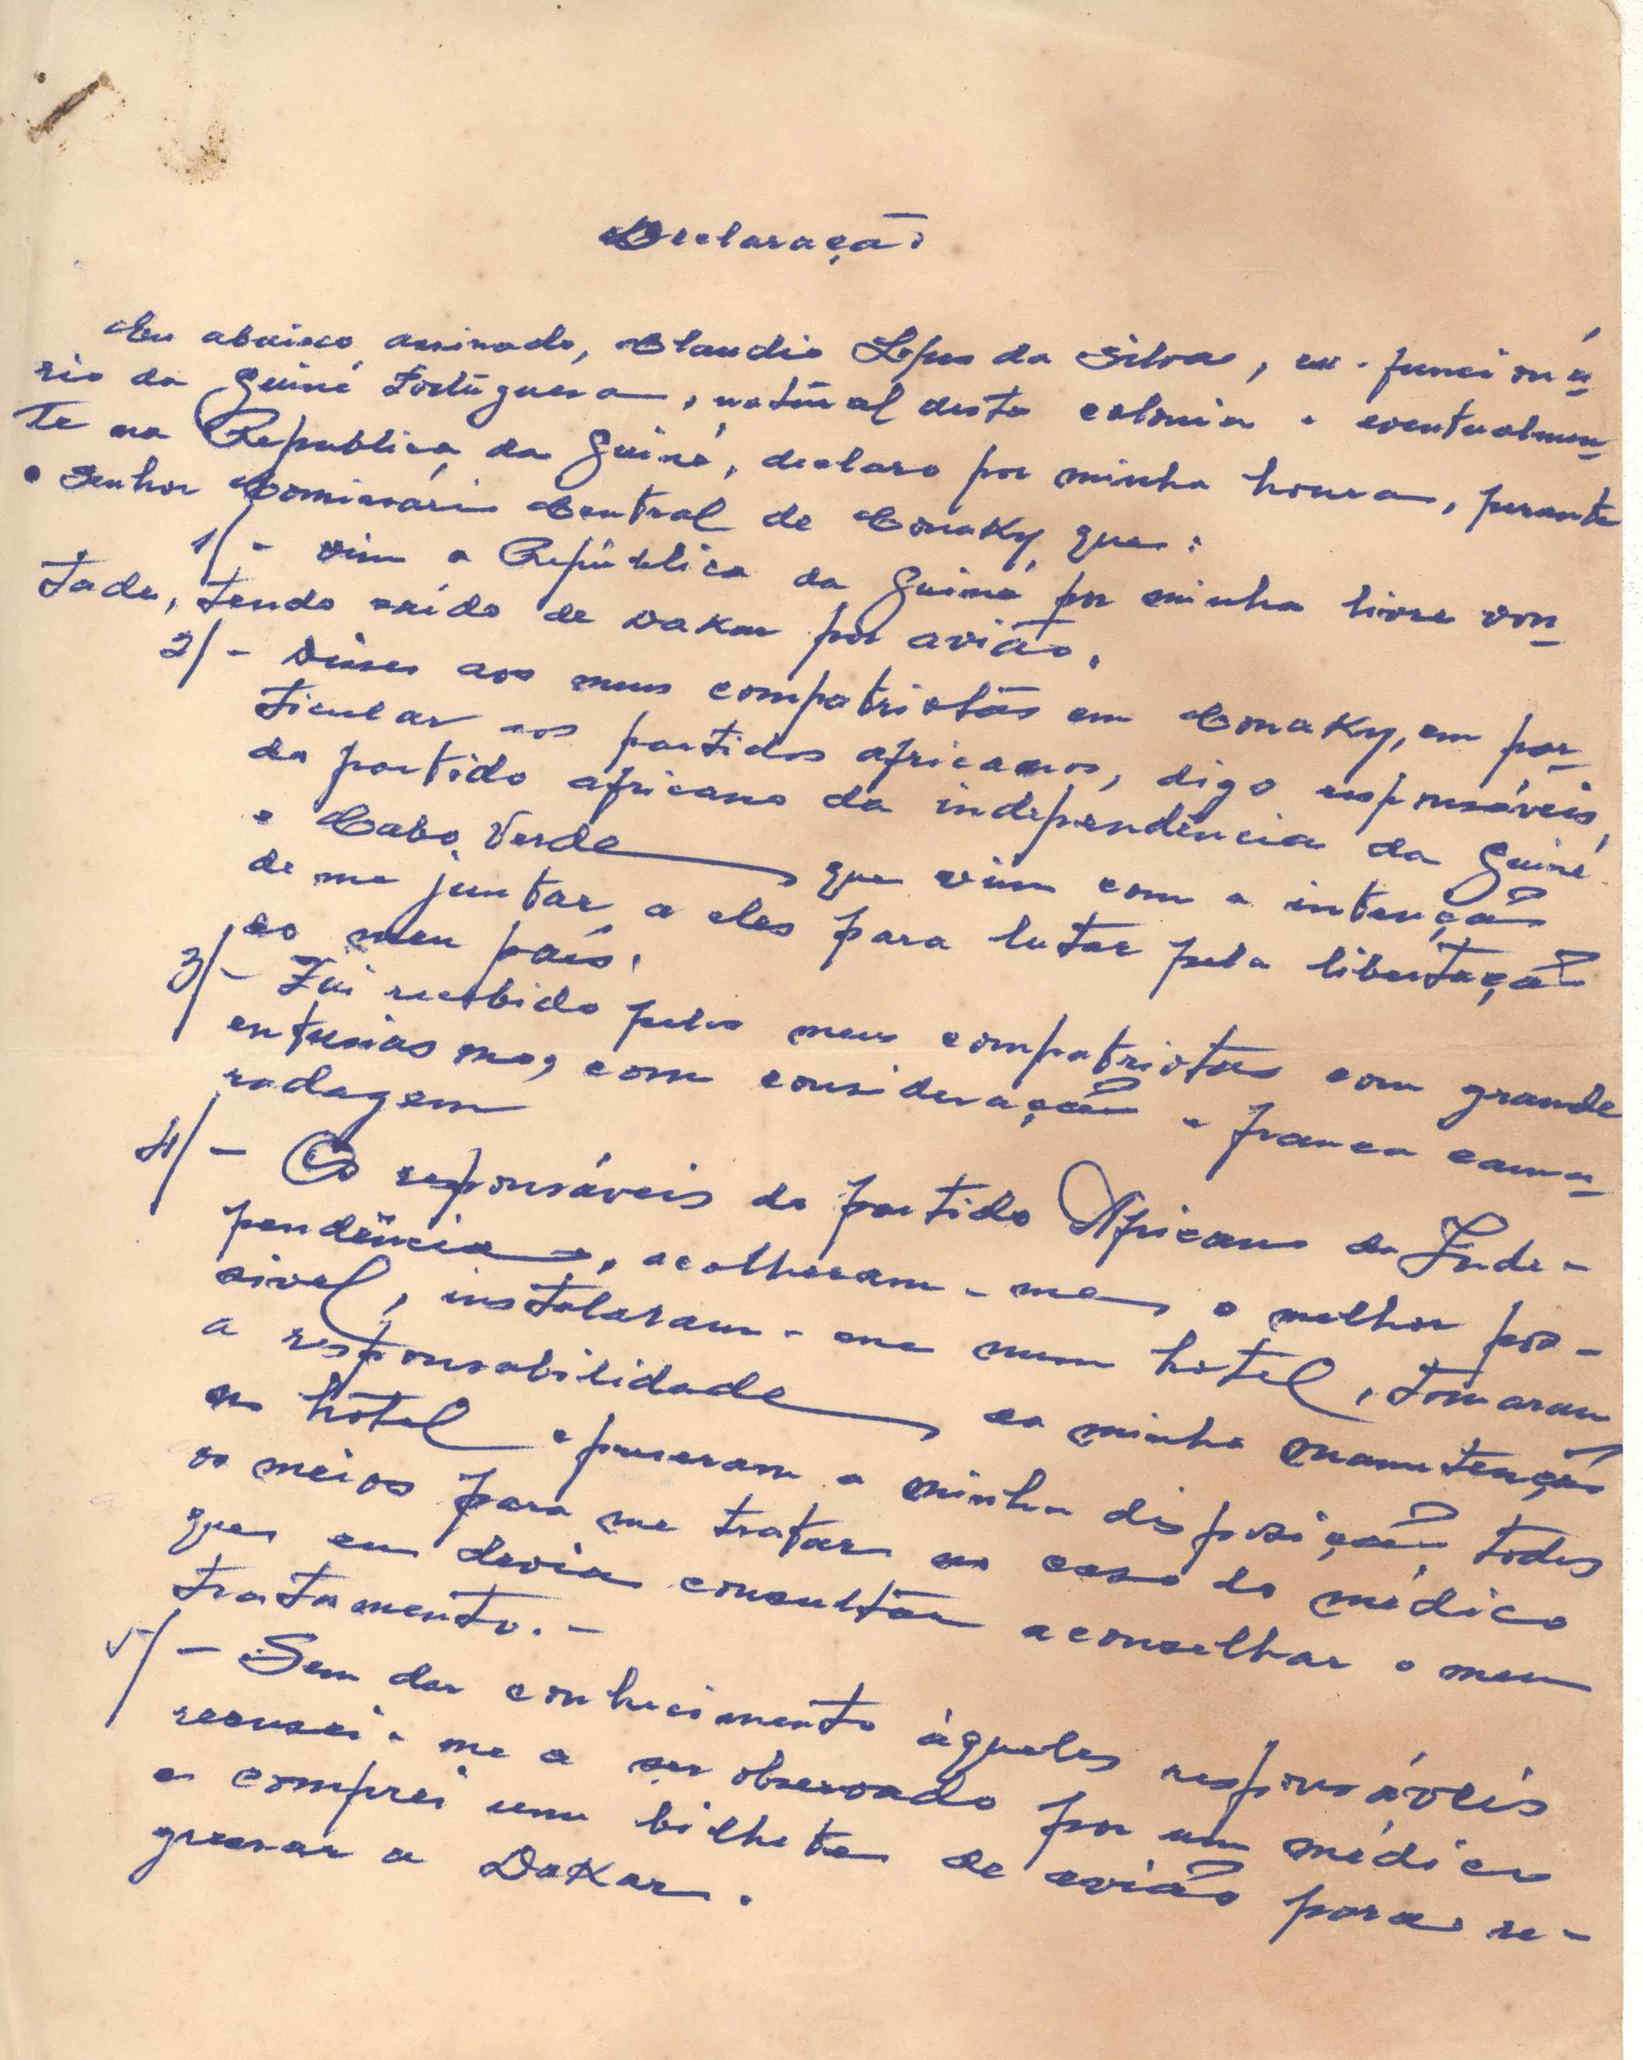 Declaração
Eu abaixo assinado, Claudio Lopes da Silva, ex-funcioná-
rio da Guiné Portuguesa, natural desta colonia e eventualmen-
te na Republica da Guiné, declaro por minha honra, perante
o Senhor Comissário Central de Conaky, que:
1/- Vim a República da Guiné por minha livre von-
tade, tendo saído de Dakar por avião.
2/- Disse aos meus compatriotas em Conaky, em par-
ticular aos partidos africanos, digo responsáveis,
do partido africano da independência da Guiné
e Cabo Verde que vim com a intenção
de me juntar a eles para lutar pela libertação
do meu país.
3/- Fui recebido pelos meus compatriotas com grande
entusiasmo, com consideração e franca cama-
radagem
4/- Os responsáveis do partido Africano da Inde-
pendência, acolheram-me o melhor pos-
sivel, instalaram-me num hotel, tomaram
a responsabilidade da minha manutenção
no hotel e puseram a minha disposição todos
os meios para me tratar no caso do médico
que eu devia consultar aconselhar o meu
tratamento.-
5/- Sem dar conhecimento àqueles responsáveis
recusei-me a ser observado por um médico
e comprei um bilhete de avião para re-
gressar a Dakar.